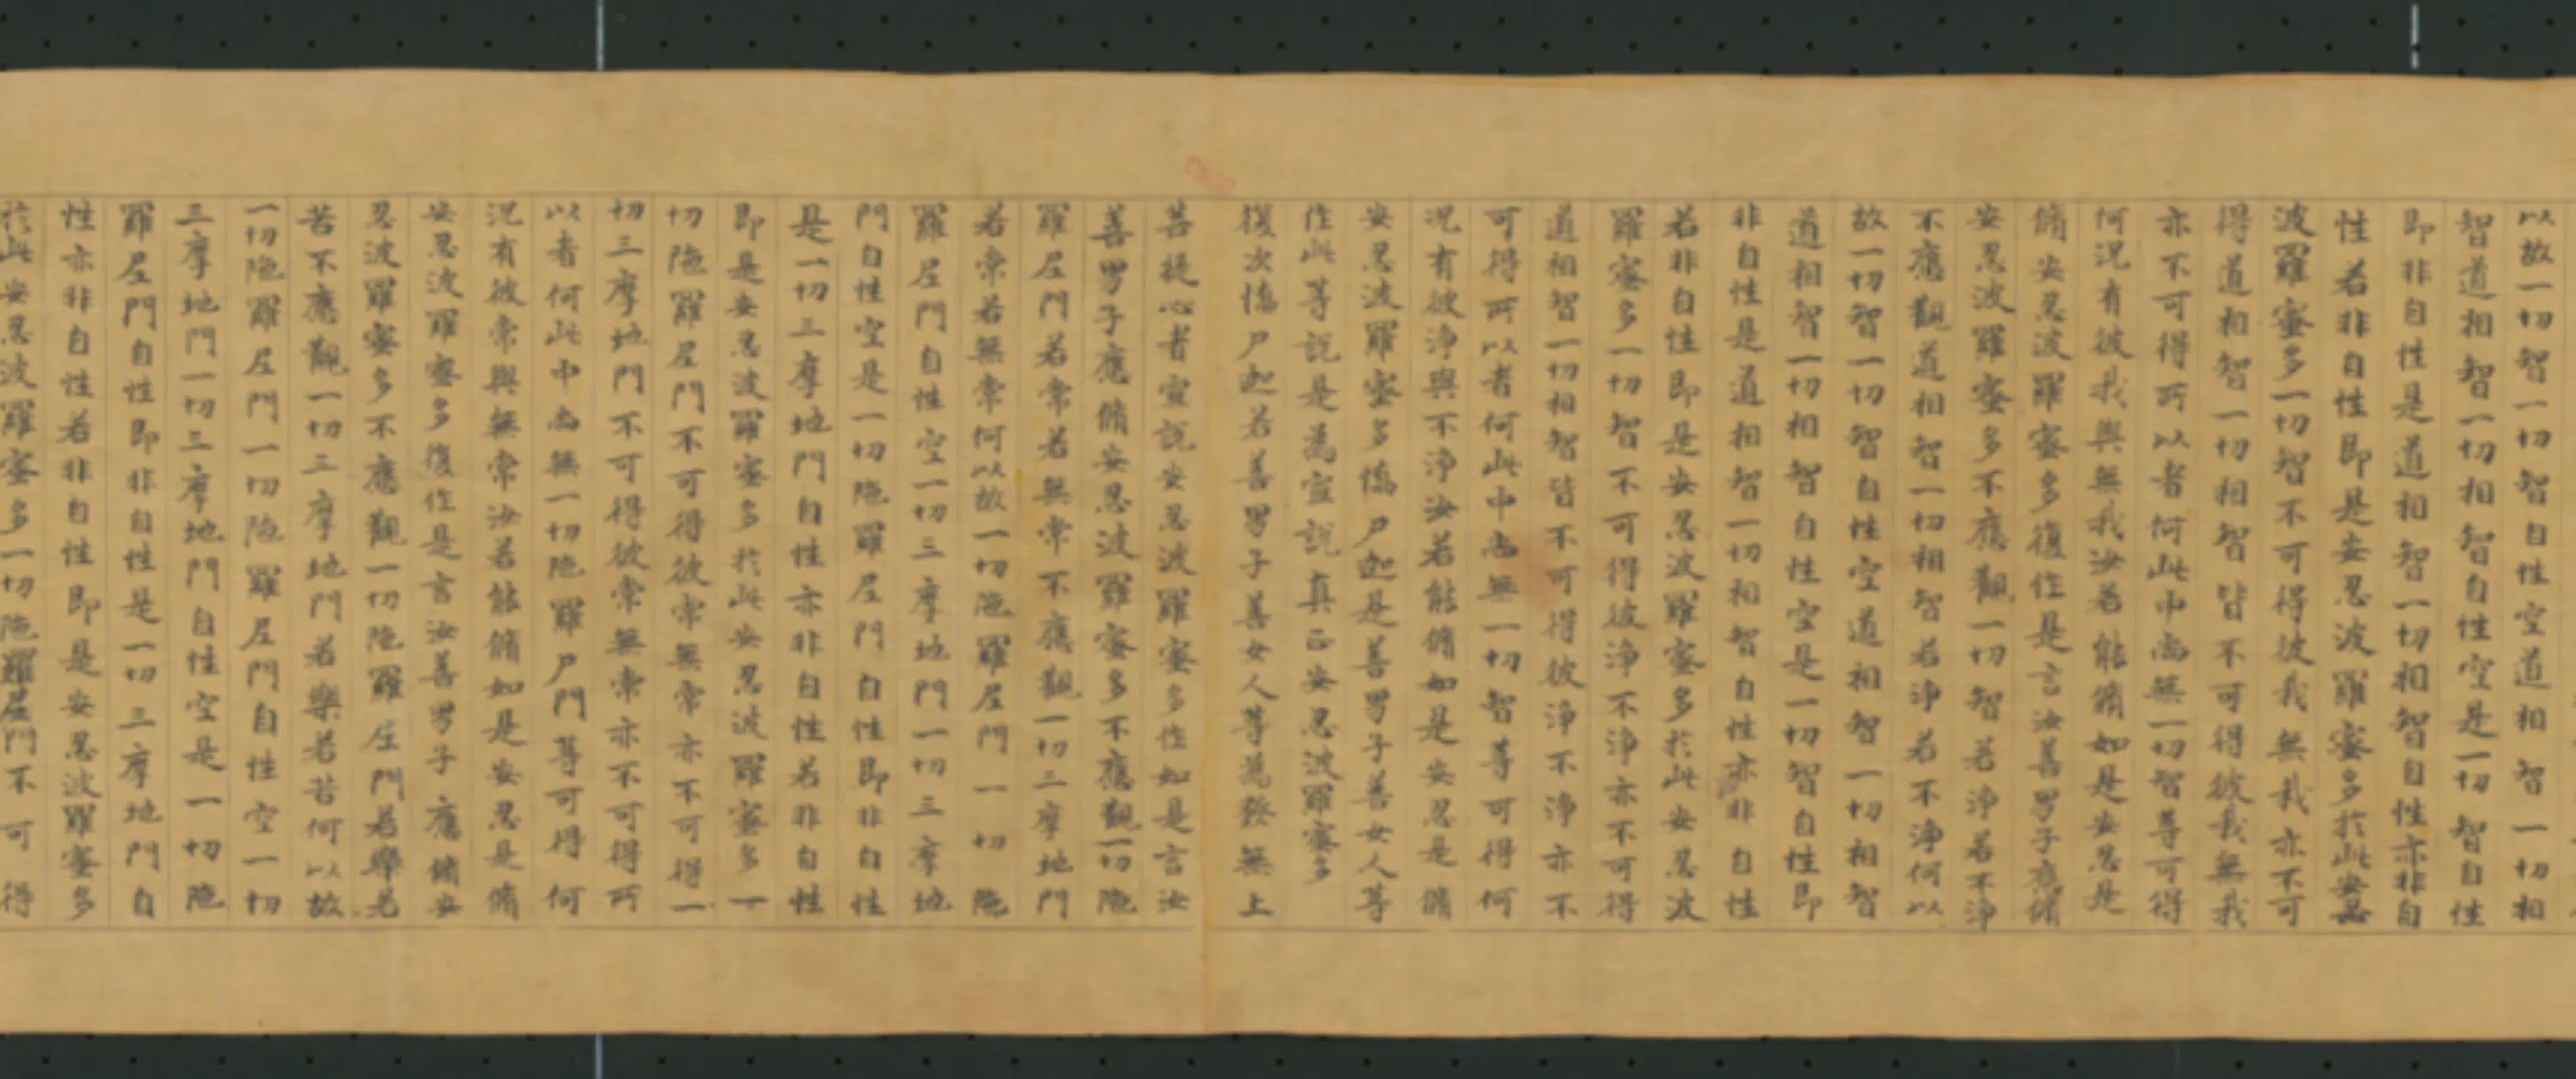 以故一切智一切智自性空道相智一切相
智道相智一切相智自性空是一切智自性
即非自性是道相智一切相智自性亦非自
性若非自性即是安忍波羅蜜多於此安忍
波羅蜜多一切智不可得彼我無我亦不可
得道相智一切相智皆不可得彼我無我
亦不可得所以者何此中尚無一切智等可得
何況有彼我與無我汝若能脩如是安忍是
脩安忍波羅蜜多復作是言汝善男子應脩
安忍波羅蜜多不應觀一切智若淨若不淨
不應觀道相智一切相智若淨若不淨何以
故一切智一切智自性空道相智一切相智
道相智一切相智自性空是一切智自性即
非自性是道相智一切相智自性亦非自性
若非自性即是安忍波羅蜜多於此安忍波
羅蜜多一切智不可得彼淨不淨亦不可得
道相智一切相智皆不可得彼淨不淨亦不
可得所以者何此中尚無一切智等可得何
況有彼淨與不淨汝若能脩如是安忍是脩
安忍波羅蜜多憍尸迦是善男子善女人等
作此等說是為宣說真正安忍波羅蜜多
復次憍尸迦若善男子善女人等為發無上
菩提心者宣說安忍波羅蜜多作如是言汝
善男子應脩安忍波羅蜜多不應觀一切陁
羅尼門若常若無常不應觀一切三摩地門
若常若無常何以故一切陁羅尼門一切陁
羅尼門自性空一切三摩地門一切三摩地
門自性空是一切陁羅尼門自性即非自性
是一切三摩地門自性亦非自性若非自性
即是安忍波羅蜜多於此安忍波羅蜜多一
切陁羅尼門不可得彼常無常亦不可得一
切三摩地門不可得彼常無常亦不可得所
以者何此中尚無一切陁羅尸門等可得何
況有彼常與無常汝若能脩如是安忍是脩
安忍波羅蜜多復作是言汝善男子應脩安
忍波羅蜜多不應觀一切陁羅尼門若樂若
苦不應觀一切三摩地門若樂若苦何以故
一切陁羅尼門一切陁羅尼門自性空一切
三摩地門一切三摩地門自性空是一切陁
羅尼門自性即非自性是一切三摩地門自
性亦非自性若非自性即是安忍波羅蜜多
於此安忍波羅蜜多一切陁羅尼門不可得